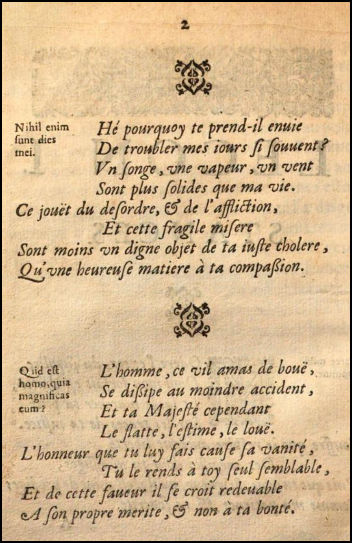 2
Nihil enim
sunt dies
mei.
Hé pourquoy te prend-il enuie
De troubler mes iours si souuent?
Vn songe, vne vapeur, vn vent
Sont plus solides que ma vie.
Ce jouët du desordre, & de l'affliction,
Et cette fragile misere
Sont moins vn digne objet de ta iuste cholere,
Qu'vne heureuse matiere à ta compassion.
Quid est
homo, quia
magnificas
eum?
L'homme, ce vil amas de bouë,
Se dissipe au moindre accident,
Et ta Majesté cependant
Le flatte, l'estime, le louë.
L'honneur que tu luy fais cause sa vanité,
Tu le rends à toy seul semblable,
Et de cette faueur il se croit redeuable
A son propre merite, & non à ta bonté.